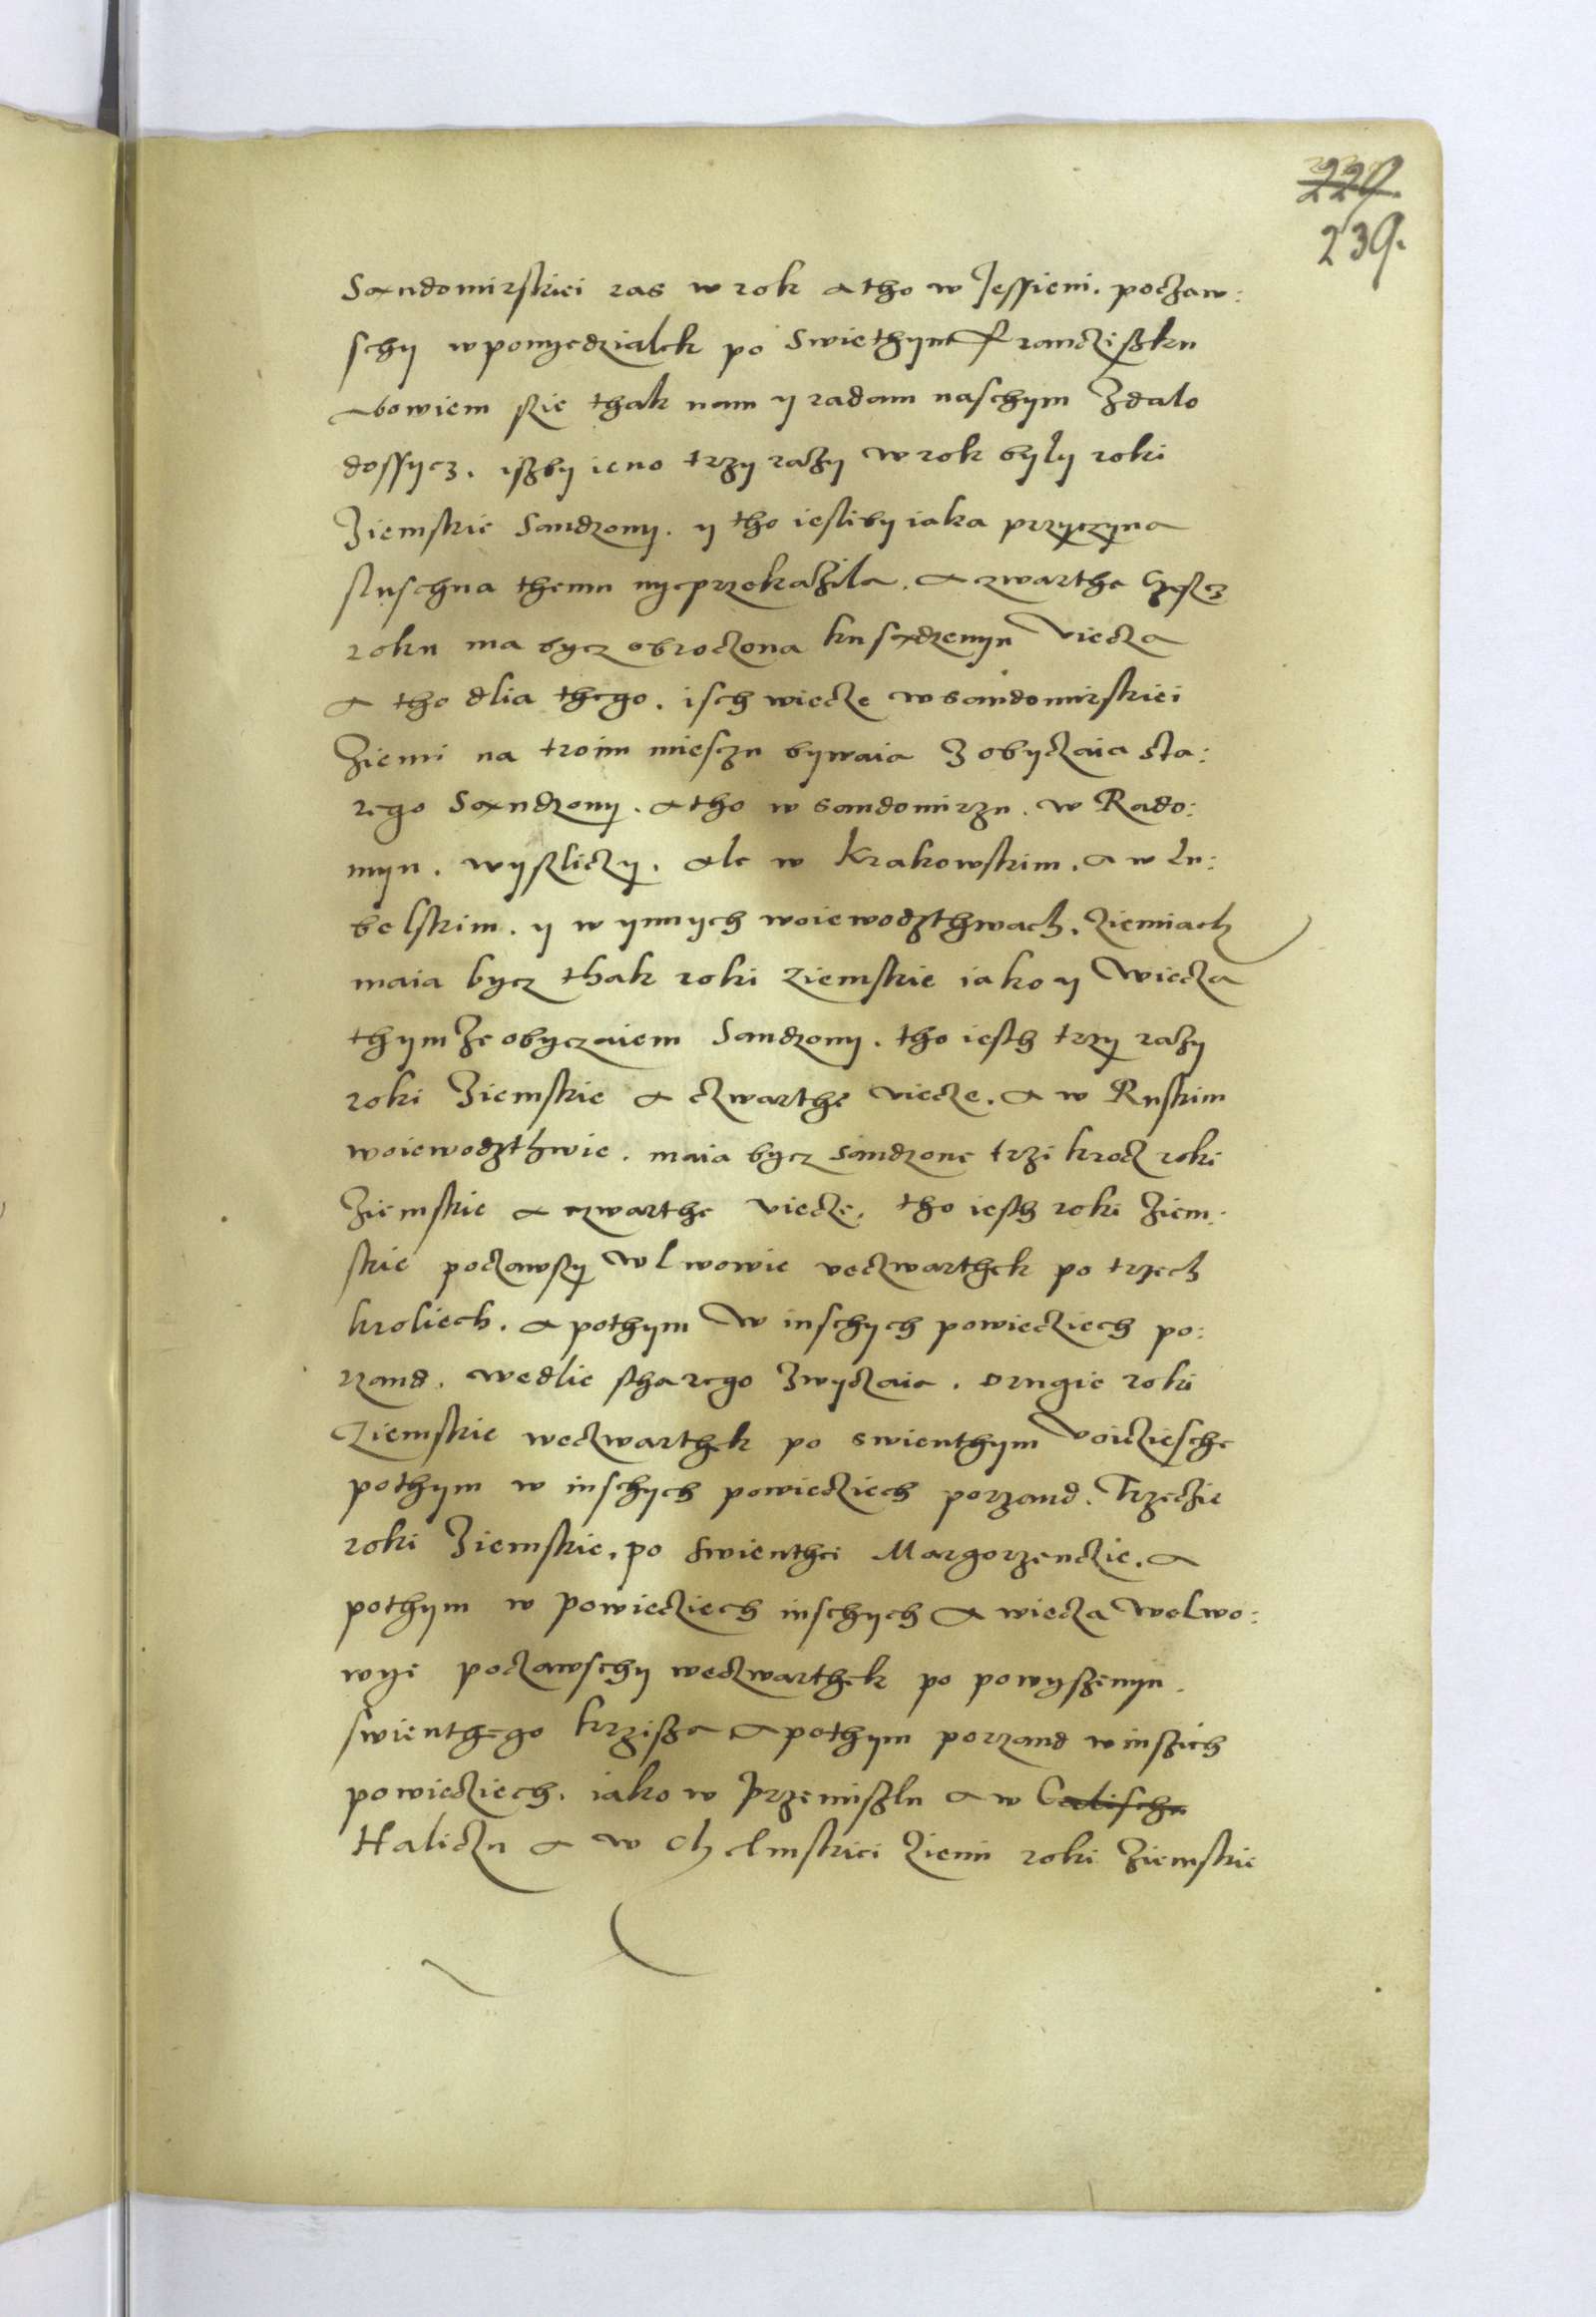 229.
239.
Sandomirskiei ras w rok a tho w Jessieni. poczaw:
schy w ponyedzialek po Swiethym Franczyszku
abowiem szie thak nam y radam naschym zdalo
dossycz. iszby ieno trzy razy w rok były roki
Ziemskie Sandzony. y tho iesliby iaka przyczyna
sluschna themu nyeprzekazila. a czwartha czescz
roku ma bycz obroczona ku sadzenyu viecza
a tho dlia thego. isch wiecze w sandomirskiei
Ziemi na troim miesczu bywaia z obyczaia sta:
rego Sandzony. a tho w sandomirzu. w Rado:
myu. wyszliczy. ale w Krakowskim. a w lu:
belskim. y w ynnych woiewodzthwach. ziemiach
maia bycz thak roki ziemskie iako y wiecza
thymze obyczaiem Sandzony. tho iesth trzy razy
roki Ziemskie a czwarthe viecze. a w Ruskim
woiewodzthwie. maia bycz sandzone trzi krocz roki
Ziemskie a czwarthe viecze. tho iesth roki Ziem:
skie poczawszy w lwowie veczwarthek po trzech
kroliech. a pothym w inschych powieciech po:
rzand. wedlie stharego zwyczaia. drugie roki
ziemskie weczwarthek po swienthym voicziesche
pothym w inschych powiecziech porzand. Trzeczie
roki Ziemskie. po swienthei Margorzenczie. a
pothym w powiecziech inschych a wiecza welwo:
wye poczawschy weczwarthek po powyszenyu
swienthego krzisza a pothym porzand w inszich
powiecziech. iako w przemiszlu a w Calischu
Haliczu a w Chelmskiei ziemi roki ziemskie